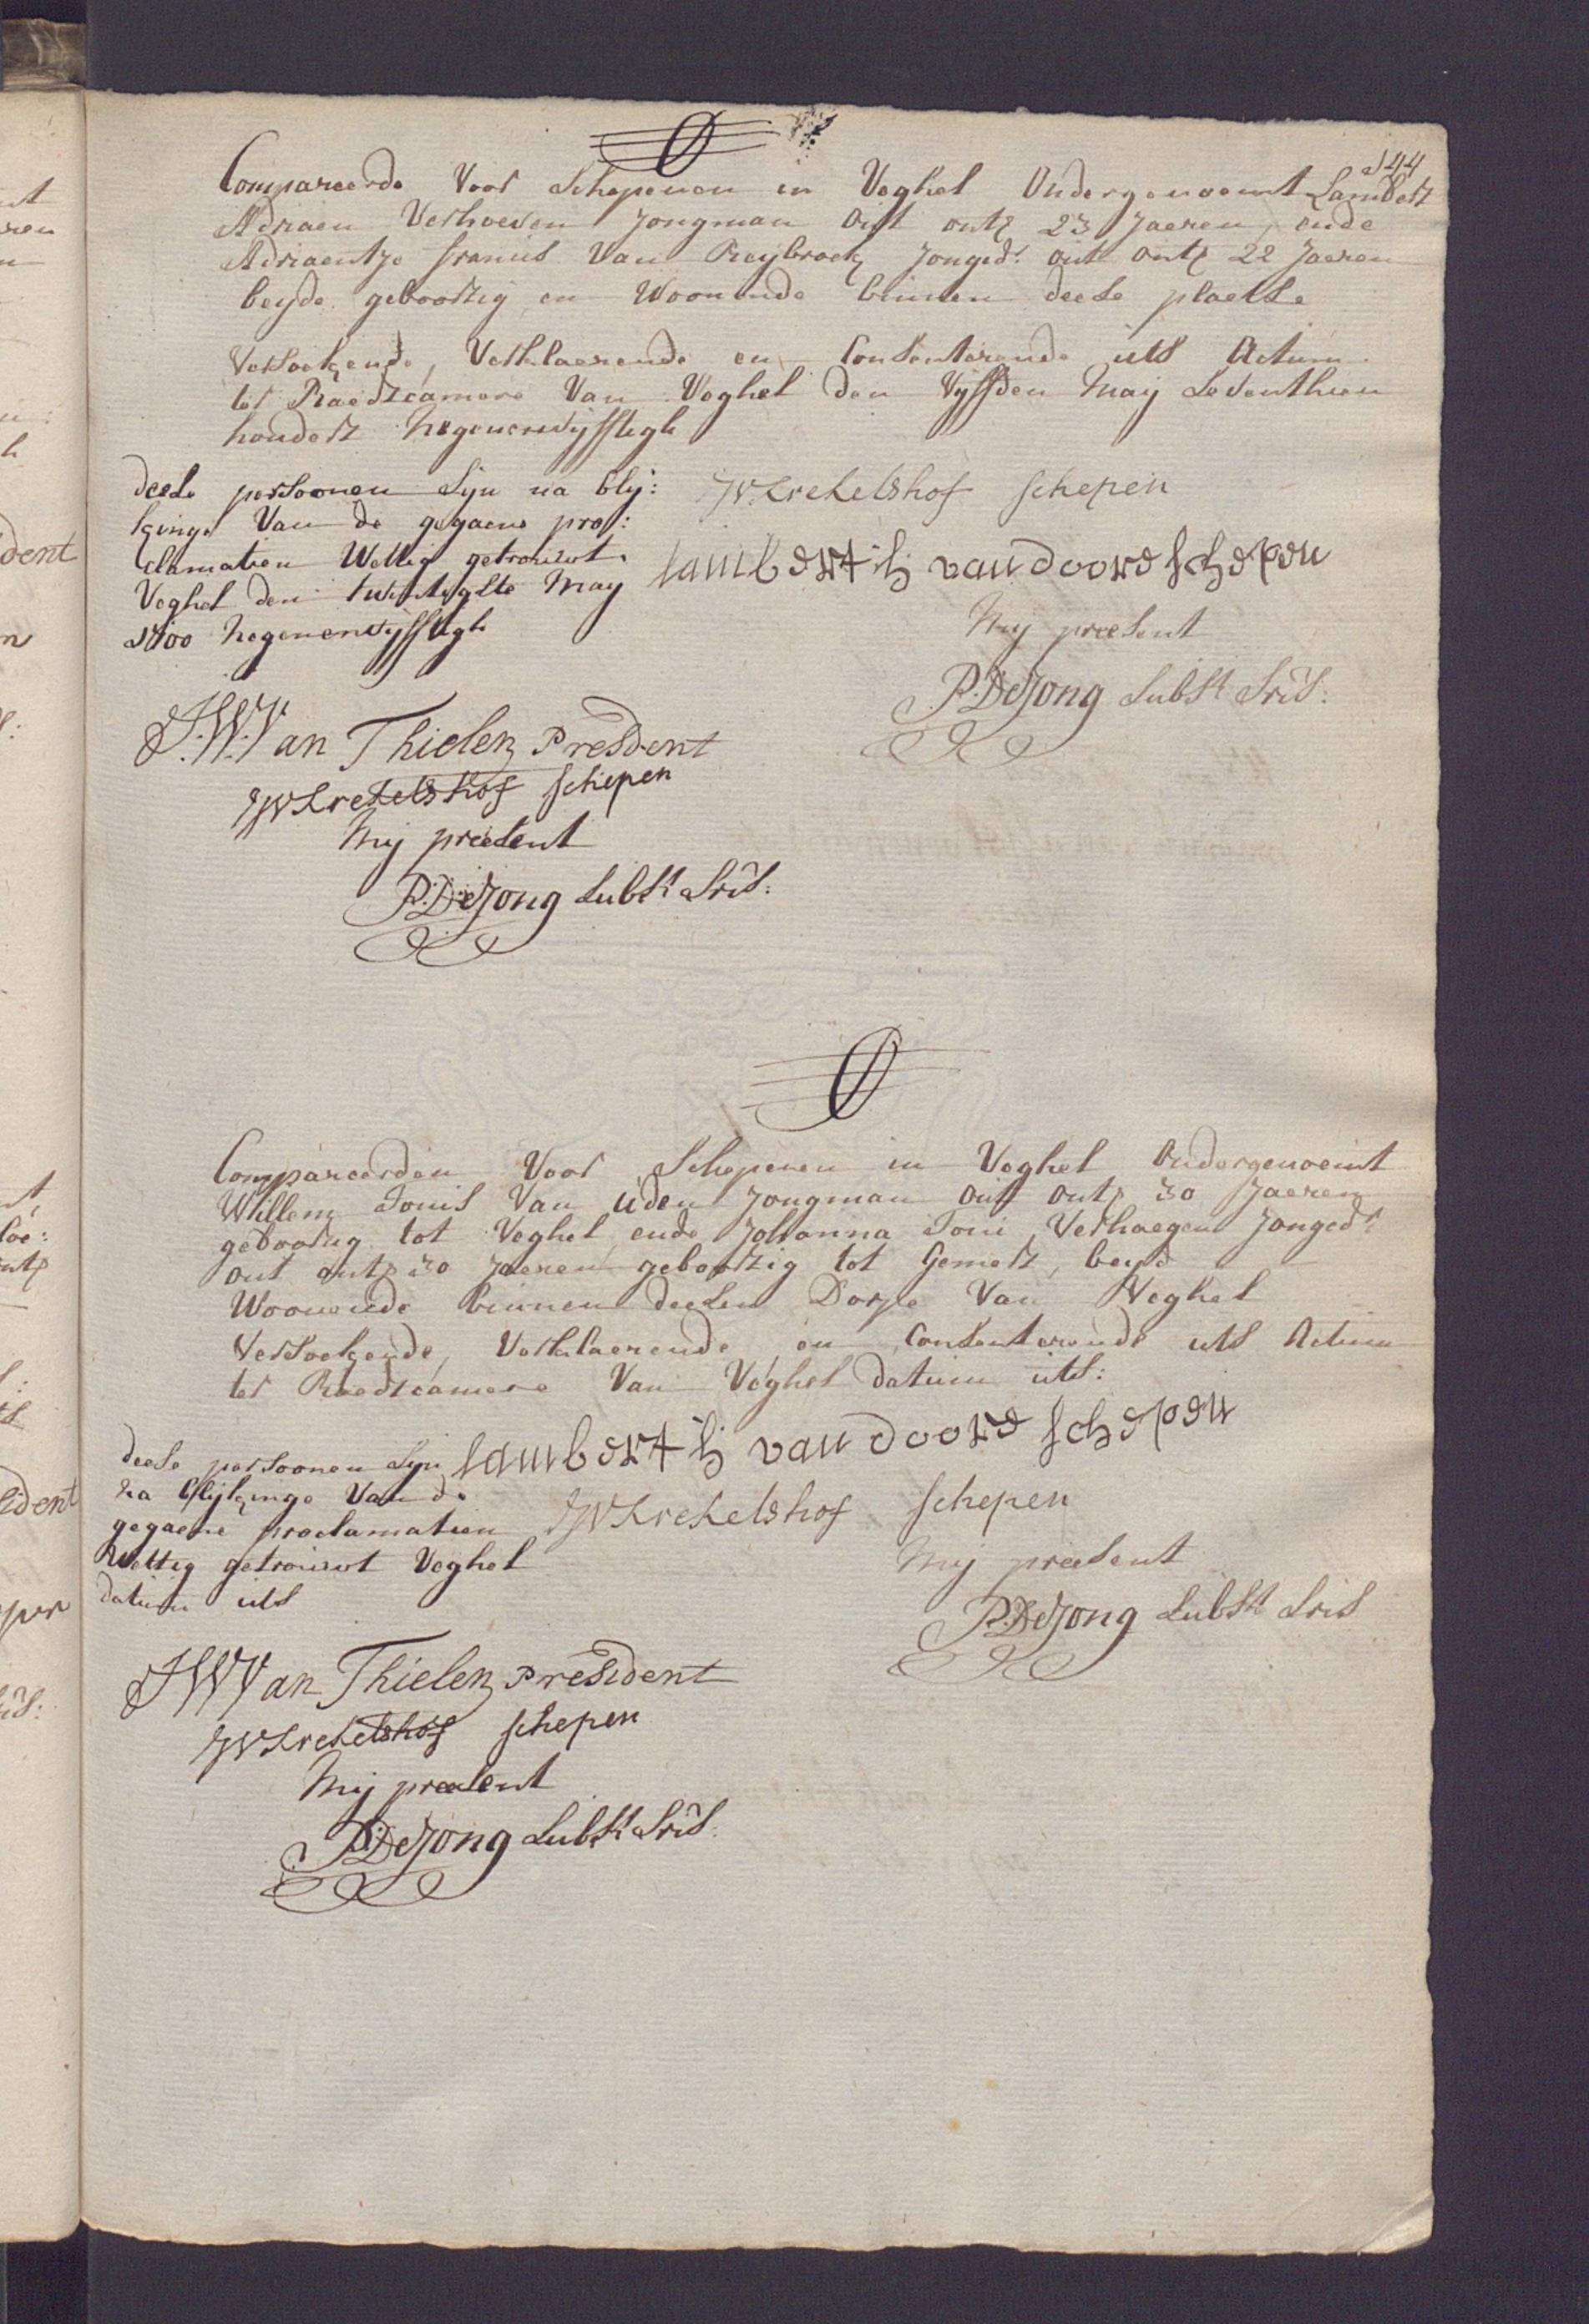 144
Compareerde Voor Schepenen in Veghel Ondergenoemt Lambert
Adriaen Verhoeven Jongman Out ontr 23 Jaeren, ende
Adriaentje Francis Van Reybroek Jonged: out ontr 22 Jaeren
beyde geboortig en Woonende binnen deese plaetse
Versoekende, Verklaerende en Consenterende uts Actum
ter Raedtcamere Van Veghel den Vyfften May Seventhien
hondert Negenenvyfftigh
deese persoonen Syn na bly:
kinge Van de gegaene pro:
clamatien Wettig getrouwt
Veghel den twintigste May
1700 Negenenvyfftigh
JW Krekelshof schepen
lambert h van doore schepen
My praesent
P. De Jong Subst Sris:
J.W. Van Thielen President
JW Krekelshof schepen
My praesent
P. De Jong Subst Sris:
Compareerden Voor Schepenen in Veghel Ondergenoemt
Willem Tonis Van uden Jongman out ontr 30 Jaeren
geboortig tot Veghel, ende Johanna Toni Verhaegen Jonged:
out ontr 30 Jaeren geboortig tot Gemert, beyde
Woonende binnen deesen Dorpe Van Veghel
Versoekende, Verklaerende, en Consenterende uts Actum
ter Raedtcamere Van Veghel datum uts:
deese persoonen Syn
na blykinge Van de
gegaene proclamatien
Wettig getrouwt Veghel
datum uts
lambert h van doore schepen
JW Krekelshof schepen
My praesent
P. De Jong Subst Sris
JW Van Thielen President
JW Krekelshof schepen
My praesent
P. De Jong Subst Sris: